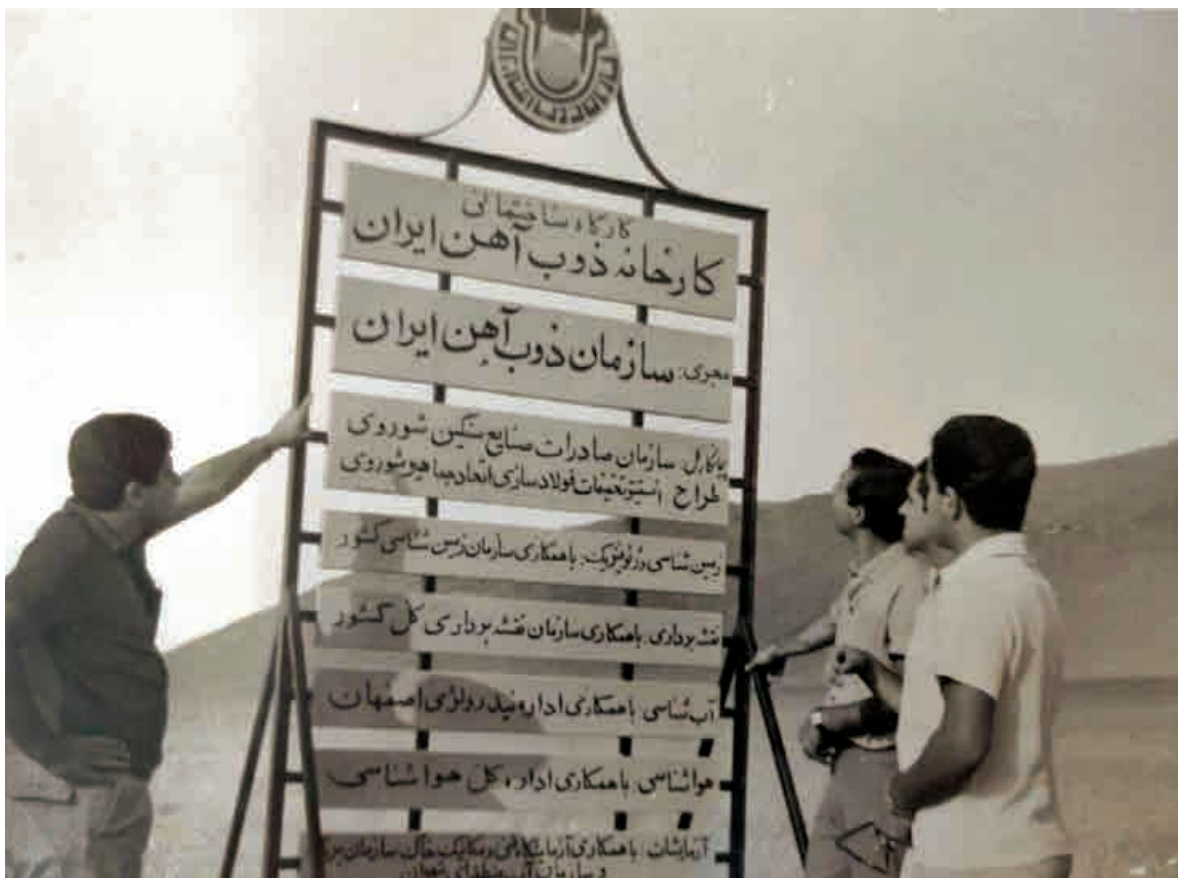 کارگاه ساختمانی
کارخانه ذوب آهن ایران
مجری: سازمان ذوب آهن ایران
پیمانکار کل: سازمان صادرات صنایع سنگین شوروی
طراح انستیتو تحقیقات فولادسازی اتحاد جماهیر شوروی
زمین شناسی و ژئوفیزیک: با همکاری سازمان زمین شناسی کشور
نقشه برداری: با همکاری سازمان نقشه برداری کل کشور
آب شناسی: با همکاری اداره هیدرولوژی اصفهان
هواشناسی: با همکاری اداره کل هواشناسی
آزمایشات: با همکاری آزمایشگاه فنی و مکانیک خاک سازمان
و سازمان آب منطقه‌ای